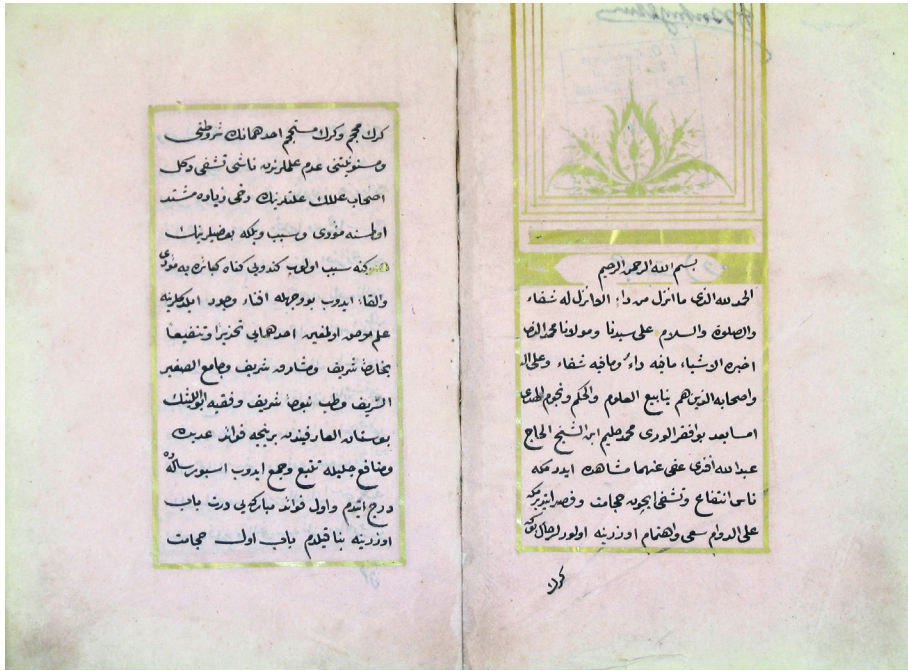 بسم الله الرحمن الرحيم
الحمد لله الذى ما انزل من داء الا انزل له شفاء
والصلوة والسلام على سيدنا ومولانا محمد الذى
اخبره الاشياء ما فيه داء وما فيه شفاء وعلى اله
واصحابه الذين هم ينابيع العلوم والحكم ونجوم الهدى
اما بعد بو افقر الورى محمد حليم ابن الشيخ الحاج
عبد الله افندى عفى عنهما مشاهده ايدركه
ناس انتفاع وتشفى ايچون حجامت وفصد
على الدوام سعى واهتمام اوزرينه اولور لر حال بوكه
كرك
كرك محجم وكرك مستحجم احدهمانك شروطنى
ومسنونيتنى عدم عملرندن ناشى تشفى دكل
اصحاب عللك علتلرينك دخى زياده مشتد
اولمسنه مؤدى وسبب وبلكه بعضيلرينك
سبب اولوب كندويى كناه كبائره مؤدى
والقاء ايدوب بو وجهله افناء وجود ايلدكلرينه
علم اولمغين احدهمايى تحذيرا وتنفيعا
بخارئ شريف ومشارق شريف وجامع الصغير
الشريف وطب نبوئ شريف وفقيه ابو الليثك
بوستان العارفيندن برنيجه فوائد عديده
ومنافع جليله تتبع وجمع ايدوب اشبو رسالهده
درج ايتدم واول فوائد مباركه يى درت باب
اوزرينه بنا قيلدم باب اول حجامت